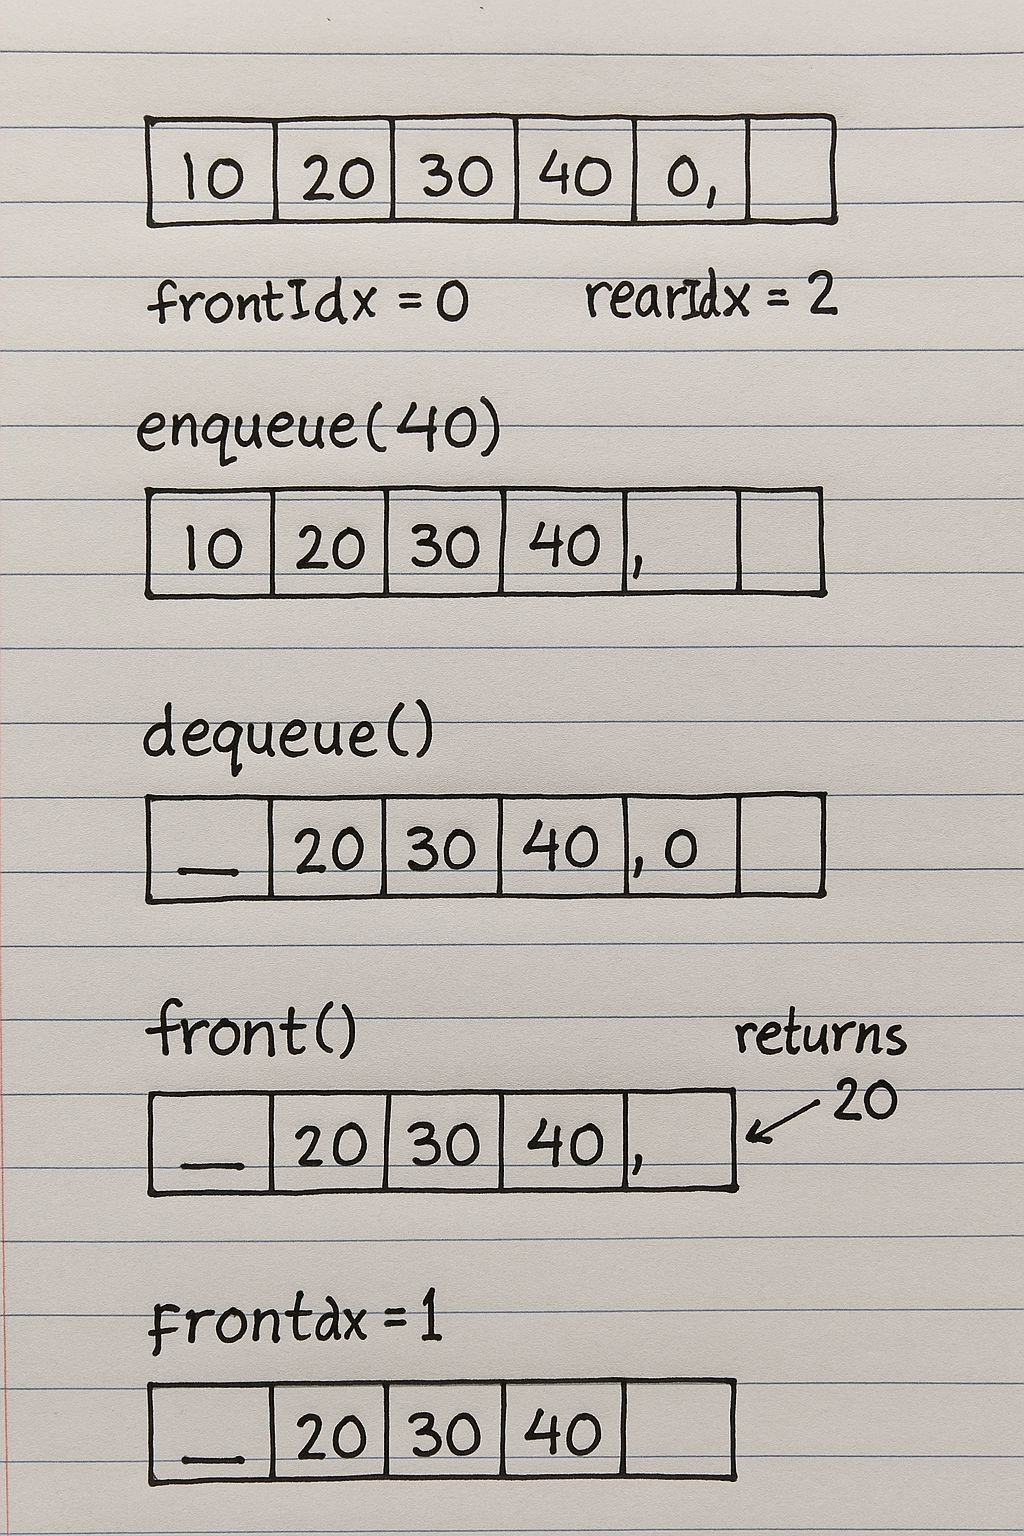 10 20 30 40 0,
frontIdx = 0 rearIdx = 2
enqueue(40)
10 20 30 40 ,
dequeue()
_ 20 30 40 , 0
front() returns
20
_ 20 30 40 ,
frontdx = 1
_ 20 30 40